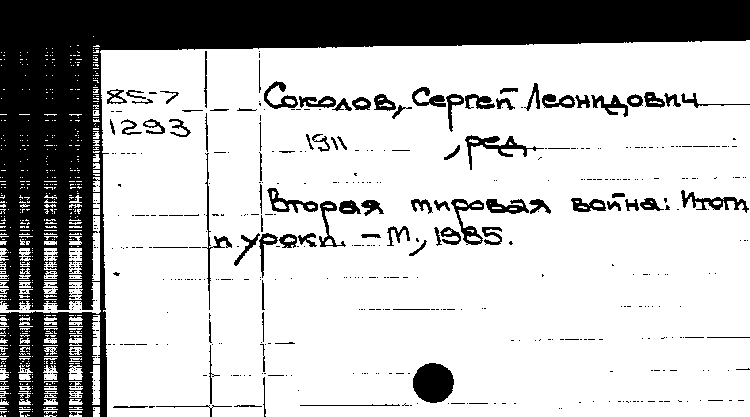 85-7 Соколов, Сергей Леонидович
1293 1911 , ред.
Вторая мировая война: Итоги
и уроки. – М., 1985.